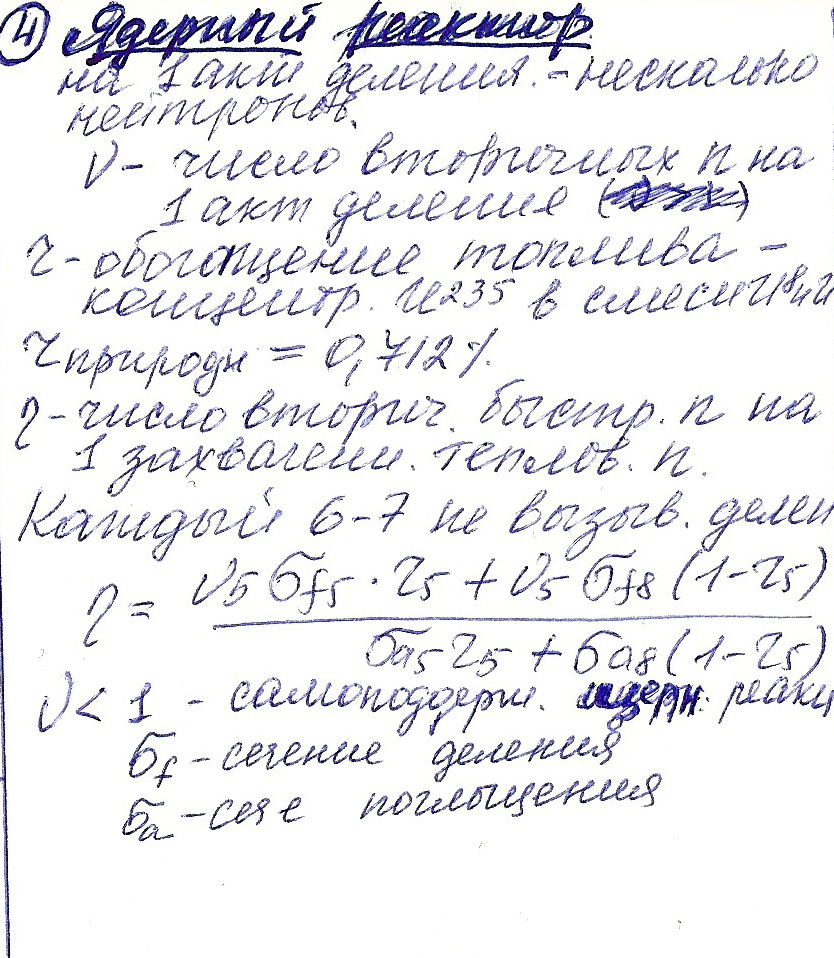 4 Ядерный реактор
на 1 акт деления. - несколько
нейтронов.
ν - число вторичных n на
1 акт деления
r - обогащение топлива -
концентр. U235 в смеси
r природн = 0,712%.
η - число вторич. быстр. n на
1 захваченн. теплов. n.
Каждый 6-7 не вызыв. делен
η = (ν5 σf5 · r5 + ν5 σf8 (1-r5)) / (σa5 r5 + σa8 (1-r5))
ν < 1 - самоподдерж. ядерн. реакц
σf - сечение деления
σa - сече поглыщения